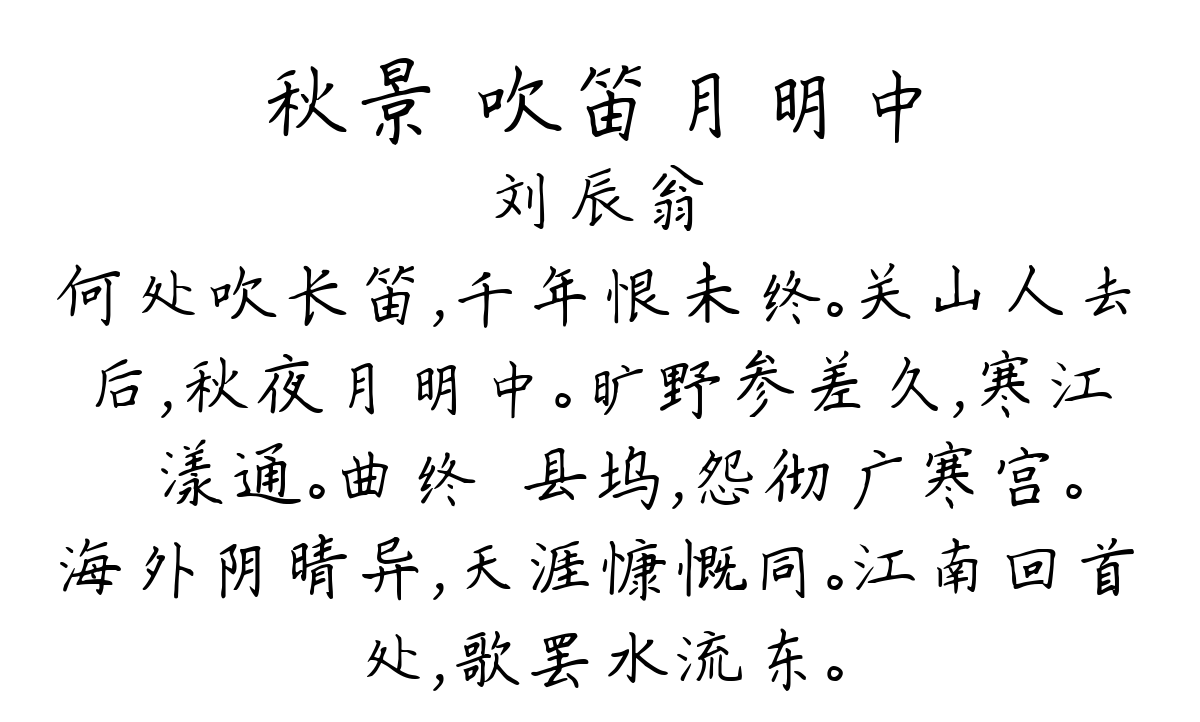 秋景 吹笛月明中
刘辰翁
何处吹长笛,千年恨未终。关山人去
后,秋夜月明中。旷野参差久,寒江
漾通。曲终 县坞,怨彻广寒宫。
海外阴晴异,天涯慷慨同。江南回首
处,歌罢水流东。